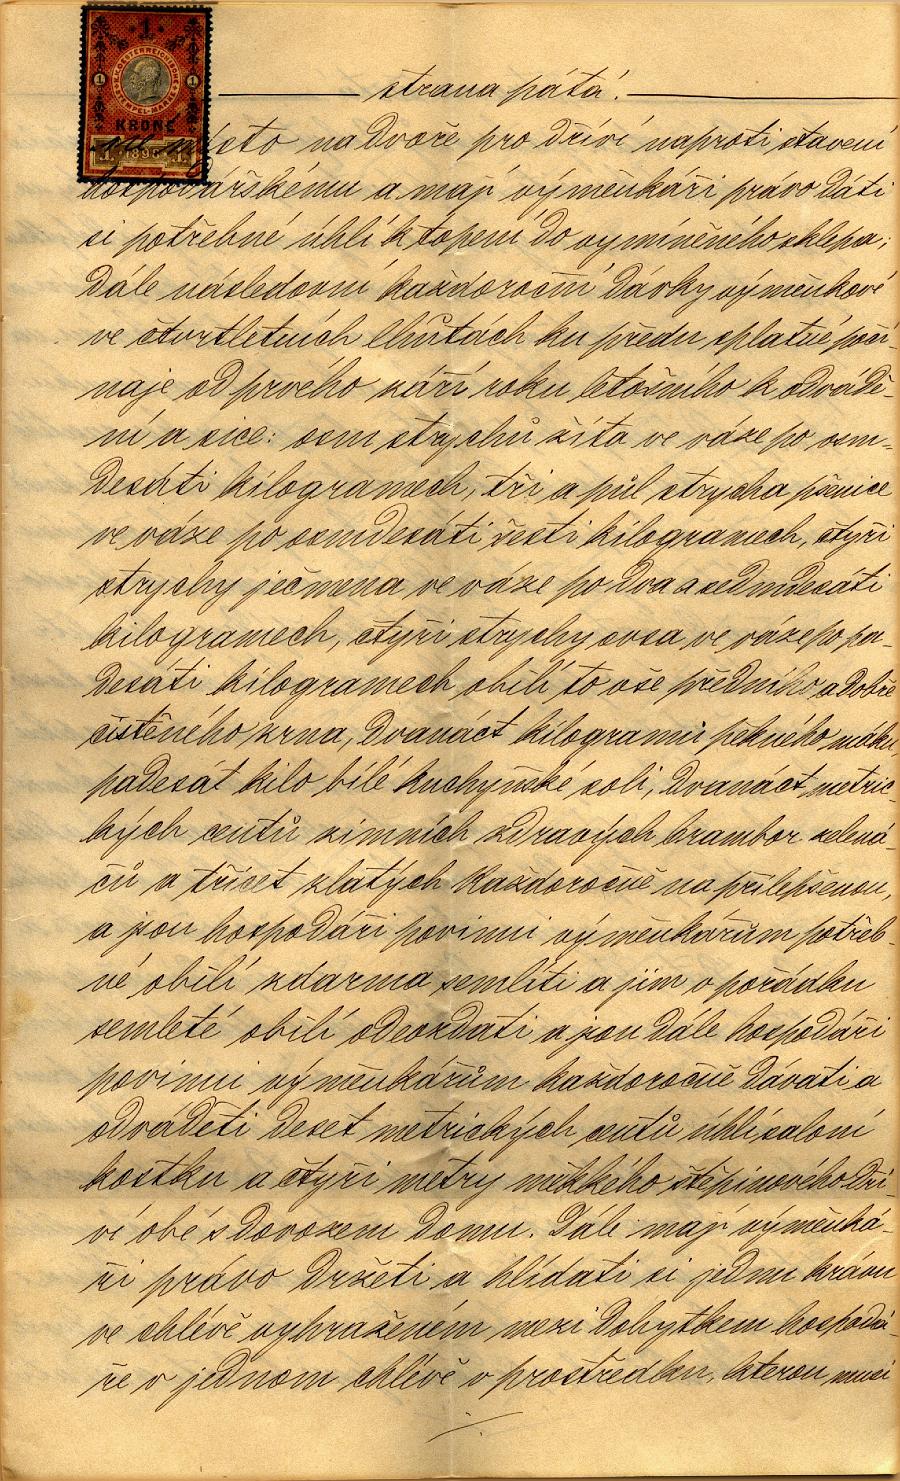 strana pátá.
1
K.K. OESTERREICHISCHE
STEMPEL-MARKE
1 1
KRONE
1 1898 1
místo na dvoře pro dříví naproti stavení
hospodářskému a mají výměnkáři právo dáti
si potřebné úhlí k topení do vymíněného sklepa;
dále následovní každoroční dávky výměnkové
ve čtvrtletních lhůtách ku předu splatné počí-
naje od prvého září roku letošního k odvádě-
ní a sice: osm strychů žita ve váze po osm-
desáti kilogramech, tři a půl strycha pšenice
ve váze po osmdesáti šesti kilogramech, čtyři
strychy ječmena ve váze po dva a sedmdesáti
kilogramech, čtyři strychy ovsa ve váze po pa-
desáti kilogramech obilí to vše předního a dobře
čistěného zrna, dvanáct kilogramů pěkného máku,
padesát kilo bílé kuchyňské soli, dvanáct metric-
kých centů zimních zdravých brambor zelená-
čů a třicet zlatých každoročně na přilepšenou,
a jsou hospodáři povinni výměnkářům potřeb-
né obilí zdarma semlíti a jim v pořádku
semleté obilí odevzdati a jsou dále hospodáři
povinni výměnkářům každoročně dávati a
odváděti deset metrických centů úhlí saloní
kostku a čtyři metry měkkého štěpinového dří-
ví obé s dovozem domu. Dále mají výměnká-
ři právo držeti a hlídati si jednu krávu
ve chlévě vyhraženém mezi dobytkem hospodá-
ře v jednom chlévě v prostředku, kterou musí